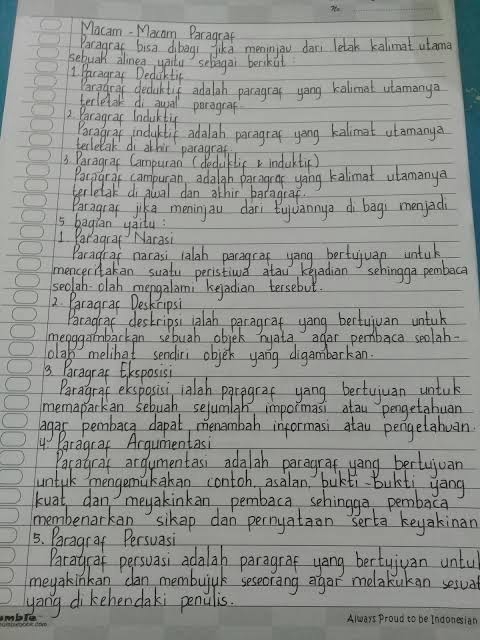 No.
Macam - Macam Paragraf
Paragraf bisa dibagi jika meninjau dari letak kalimat utama
sebuah alinea yaitu sebagai berikut :
1. Paragraf Deduktif
Paragraf deduktif adalah paragraf yang kalimat utamanya
terletak di awal paragraf.
2. Paragraf Induktif
Paragraf induktif adalah paragraf yang kalimat utamanya
terletak di akhir paragraf.
3. Paragraf Campuran (deduktif & induktif)
Paragraf campuran adalah paragraf yang kalimat utamanya
terletak di awal dan akhir paragraf.
Paragraf jika meninjau dari tujuannya di bagi menjadi
5 bagian yaitu :
1. Paragraf Narasi
Paragraf narasi ialah paragraf yang bertujuan untuk
menceritakan suatu peristiwa atau kejadian sehingga pembaca
seolah-olah mengalami kejadian tersebut.
2. Paragraf Deskripsi
Paragraf deskripsi ialah paragraf yang bertujuan untuk
menggambarkan sebuah objek nyata agar pembaca seolah-
olah melihat sendiri objek yang digambarkan.
3. Paragraf Eksposisi
Paragraf eksposisi ialah paragraf yang bertujuan untuk
memaparkan sebuah sejumlah impormasi atau pengetahuan
agar pembaca dapat menambah informasi atau pengetahuan.
4. Paragraf Argumentasi
Paragraf argumentasi adalah paragraf yang bertujuan
untuk mengemukakan contoh, asalan, bukti-bukti yang
kuat dan meyakinkan pembaca sehingga pembaca
membenarkan sikap dan pernyataan serta keyakinan
5. Paragraf Persuasi
Paragraf persuasi adalah paragraf yang bertujuan untu
meyakinkan dan membujuk seseorang agar melakukan sesuat
yang di kehendaki penulis.
Always Proud to be Indonesian